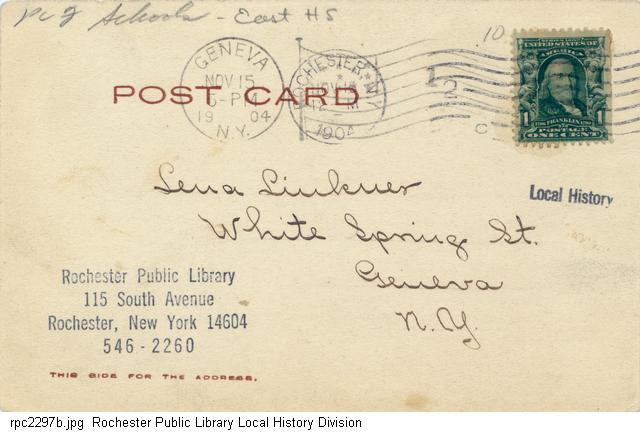 Schools - East HS
10
UNITED STATES OF
AMERICA
FRANKLIN
POSTAGE
1 ONE CENT 1
GENEVA
NOV 15
5-PM
19 04
N.Y.
ROCHESTER, N.Y.
1904
1
2
C
POST CARD
Lena Linkner
White Spring St.
Geneva
N.Y.
Local History
Rochester Public Library
115 South Avenue
Rochester, New York 14604
546-2260
THIS SIDE FOR THE ADDRESS.
rpc2297b.jpg Rochester Public Library Local History Division